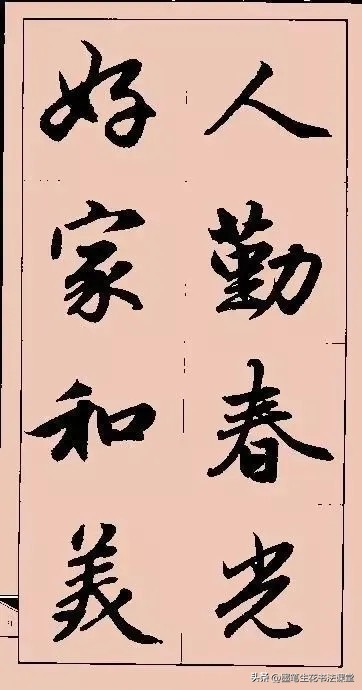 人勤春光
好家和美
头条@墨笔生花书法课堂